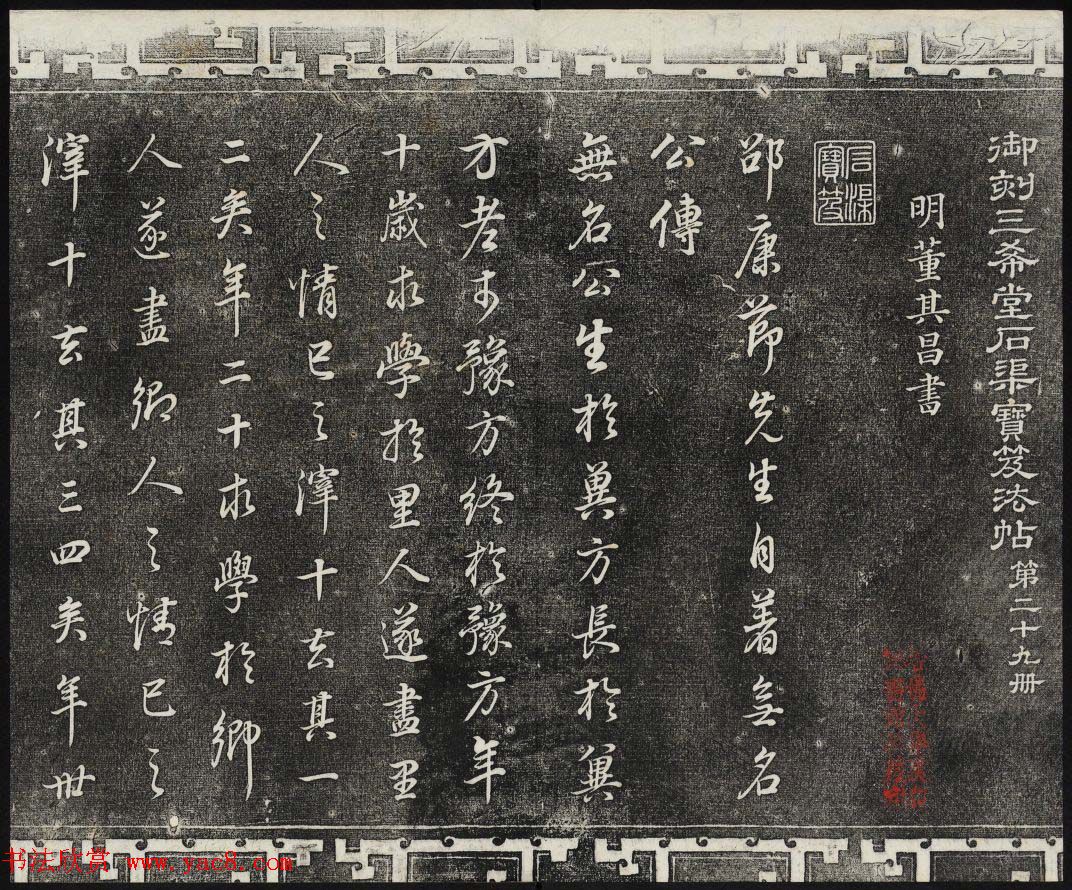 御刻三希堂石渠寶笈法帖第二十九册
明董其昌書
石渠寶笈
邵康節先生自着無名
公傳
無名公生於冀方長於冀
方老於豫方終於豫方年
十歲求學於里人遂盡里
人之情己之滓十去其一
二矣年二十求學於鄉
人遂盡鄉人之情己之
滓十去其三四矣年卅
书法欣赏 www.yac8.com